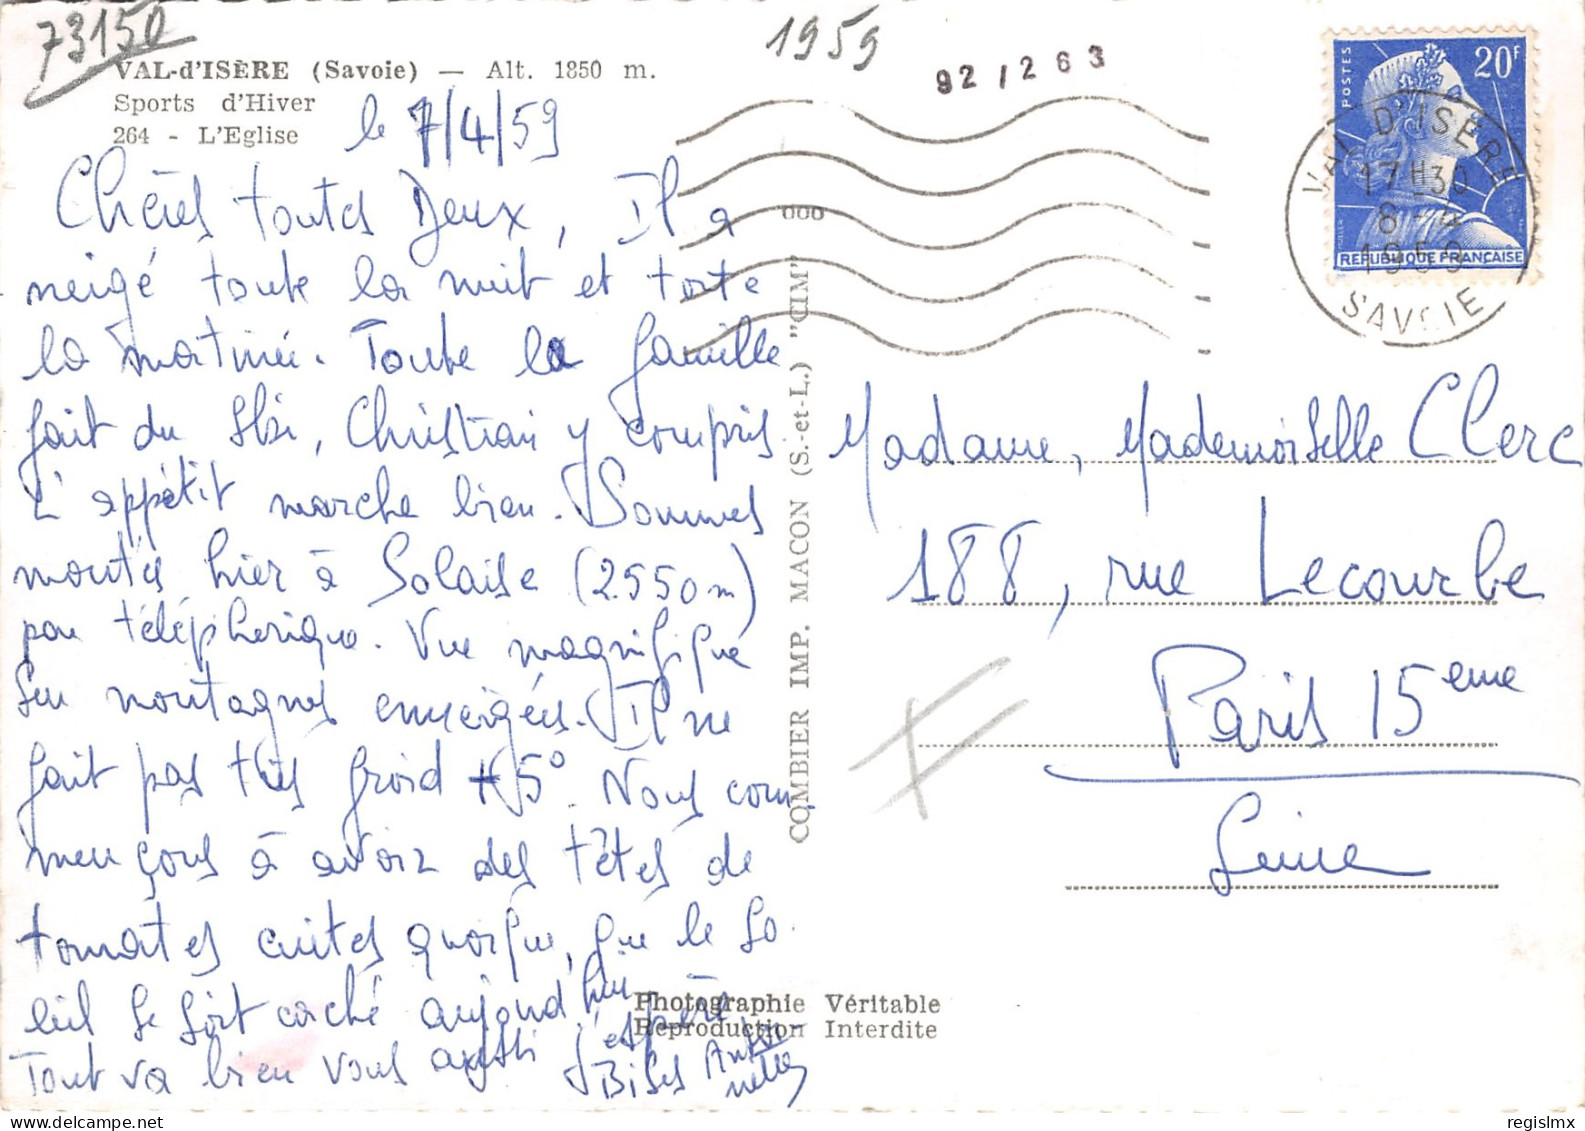 73150
1959
92/263
VAL-d'ISÈRE (Savoie) — Alt. 1850 m.
Sports d'Hiver
264 - L'Eglise
le 7/4/59
Chères toutes Deux, Il a
neigé toute la nuit et toute
la matinée. Toute la famille
fait du ski, Christian y compris
L'appétit marche bien. Sommes
montés hier à Solaise (2550m)
par téléphérique. Vue magnifique
sur montagnes enneigées. Il ne
fait pas très froid +5°. Nous com-
mençons à avoir des têtes de
tomates cuites quoique, que le so-
leil se soit caché aujourd'hui
Tout va bien vous aussi j'espère
Bises Antoi-
nette
COMBIER IMP. MACON (S.-et-L.) "CIM"
Photographie Véritable
Reproduction Interdite
POSTES
20F
REPUBLIQUE FRANÇAISE
VAL D'ISÈRE
17H30
8-4
1959
SAVOIE
Madame, Mademoiselle Clerc
188, rue Lecourbe
Paris 15eme
Seine
regislmx